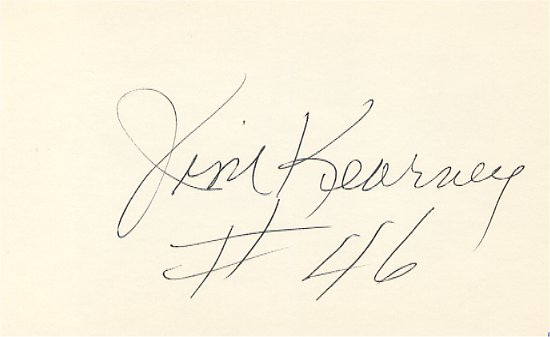 Jim Kearney
# 46